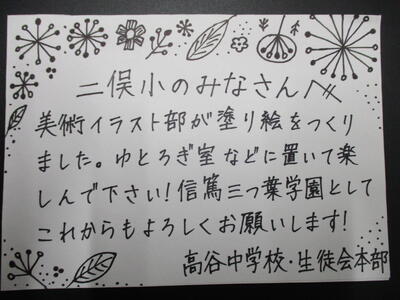 二俣小のみなさんへ
美術イラスト部が塗り絵をつくり
ました。ゆとろぎ室などに置いて楽
しんで下さい!信篤三つ葉学園として
これからもよろしくお願いします!
高谷中学校・生徒会本部